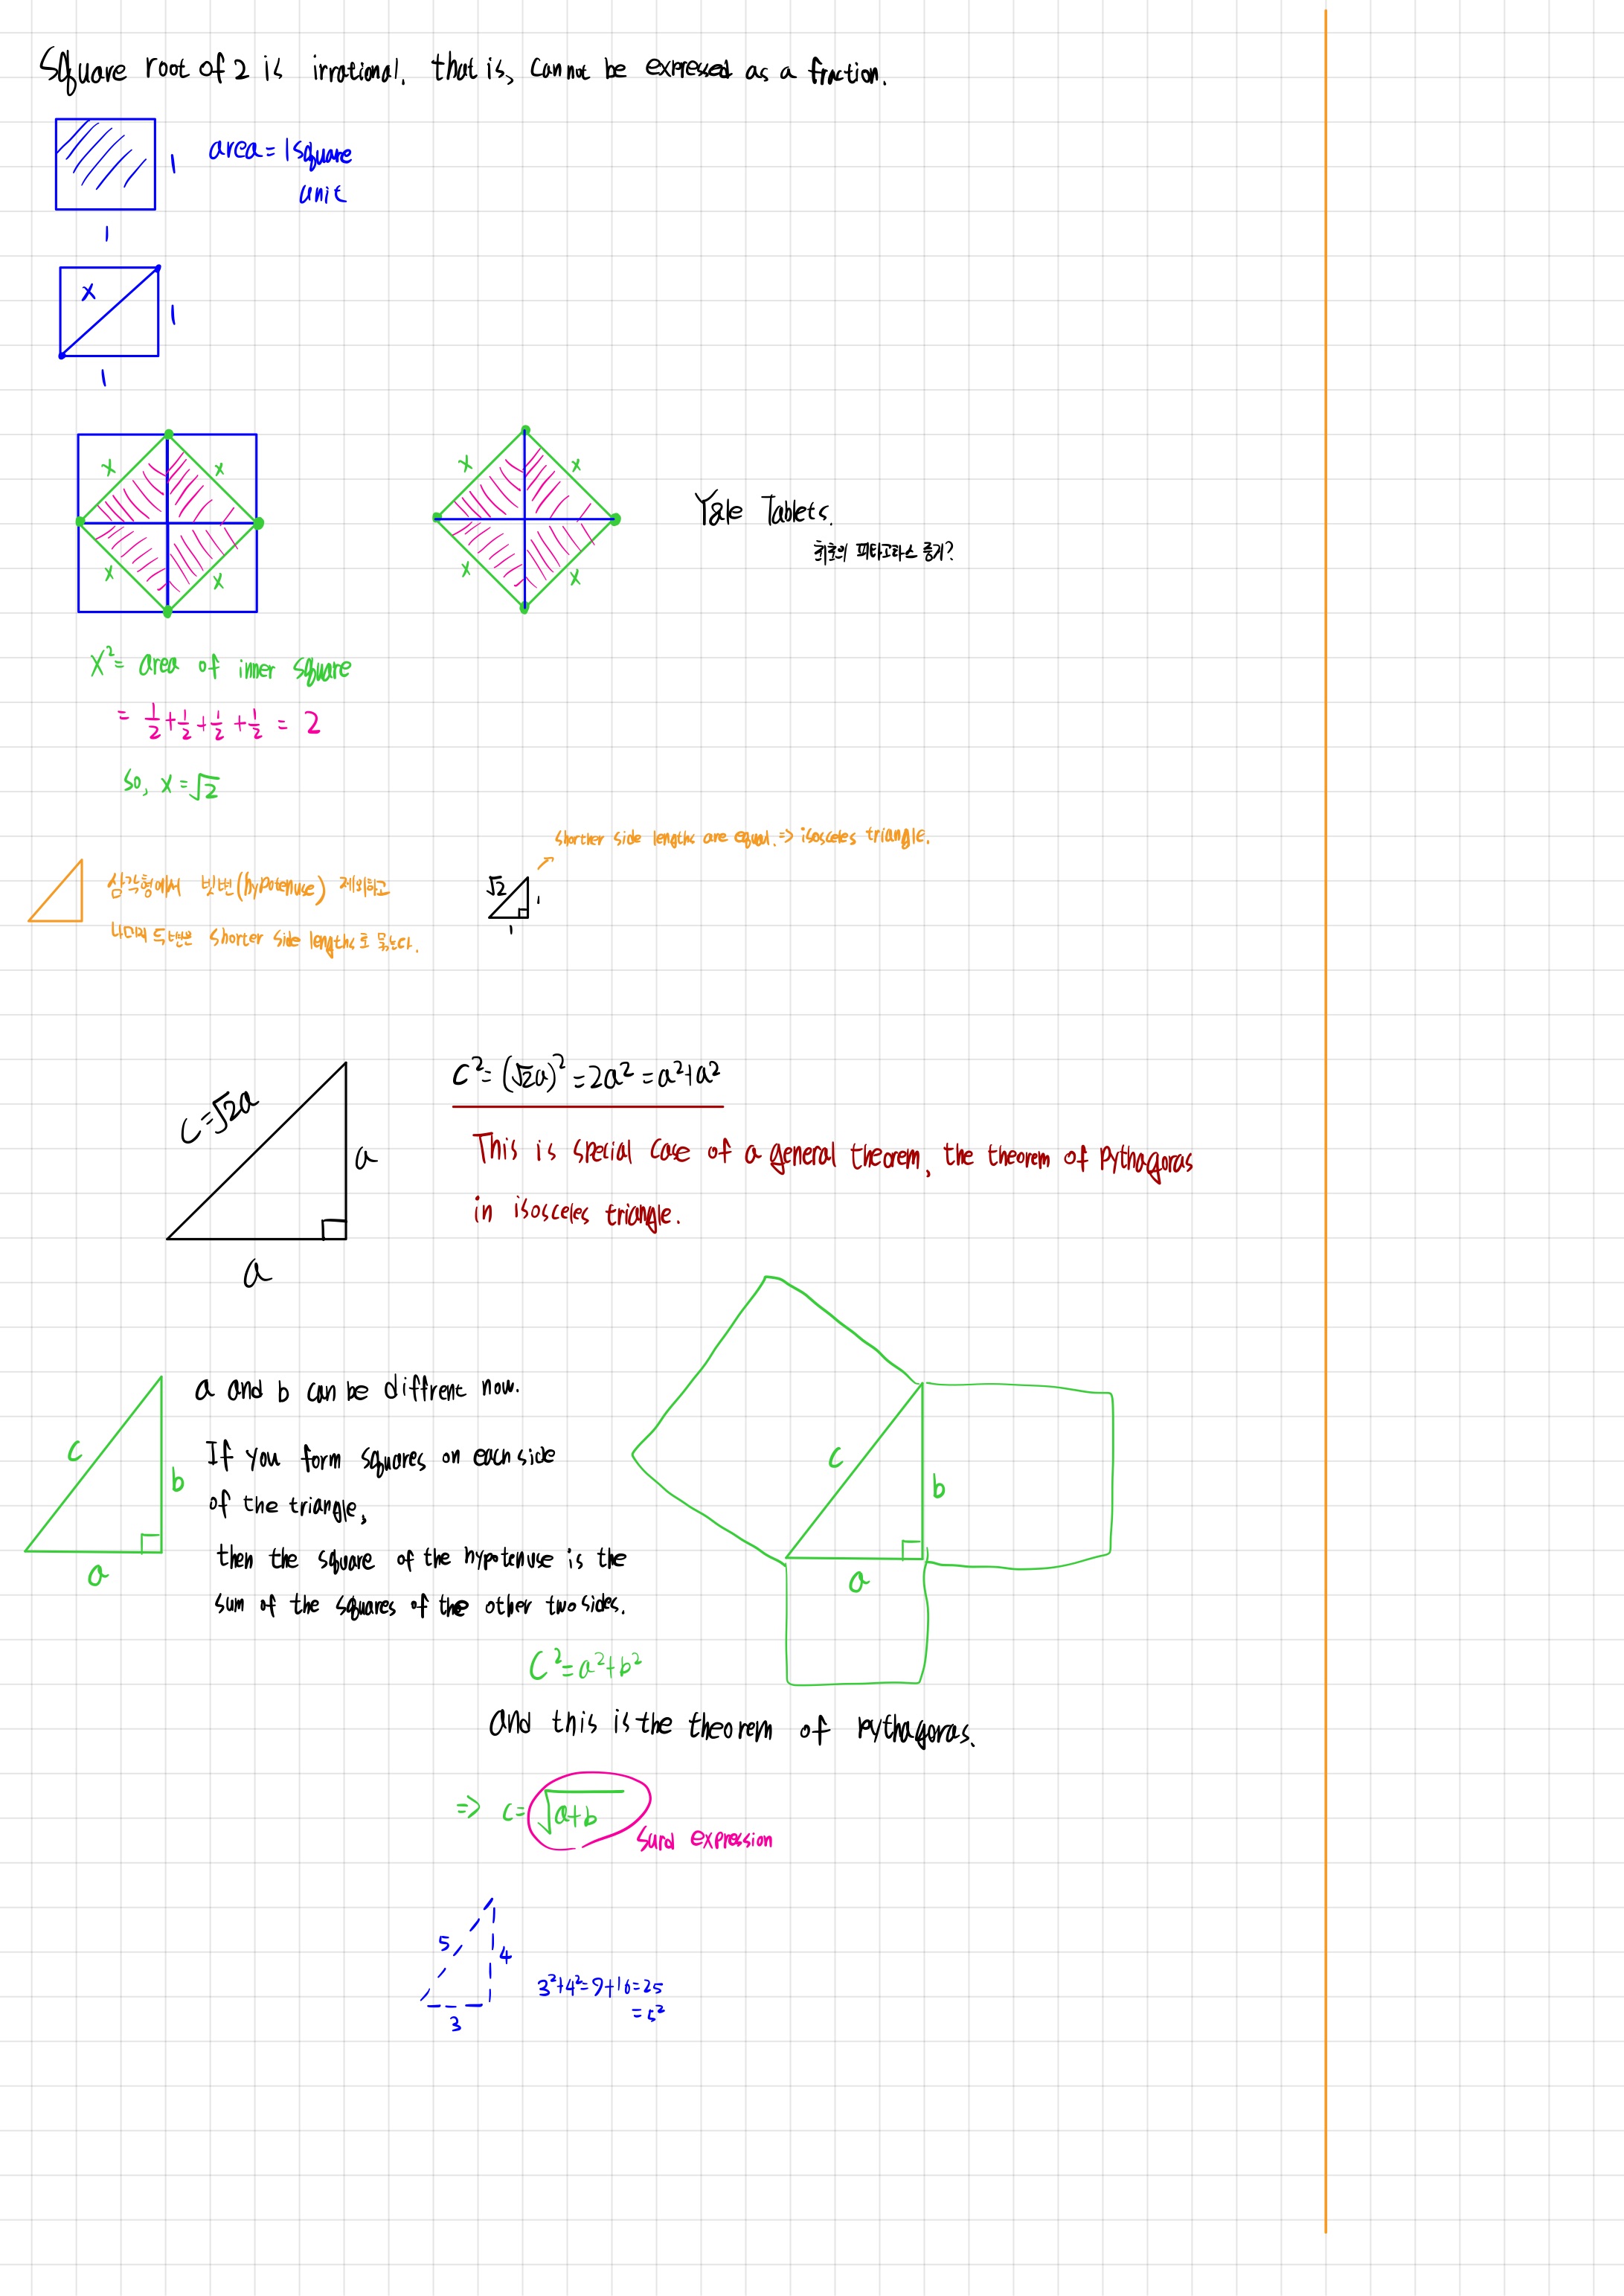 Square root of 2 is irrational. that is, cannot be expressed as a fraction.
1
area = 1 square
unit
1
x
1
1
x x
x x
x x
x x
Yale Tablets.
최초의 피타고라스 증거?
x² = area of inner square
= 1/2 + 1/2 + 1/2 + 1/2 = 2
so, x = √2
shorther side lengths are equal. => isosceles triangle.
삼각형에서 빗변(hypotenuse) 제외하고
나머지 두변은 shorter side lengths로 묶는다.
√2
1
1
c = √2a
a
a
c² = (√2a)² = 2a² = a² + a²
This is special case of a general theorem, the theorem of pythagoras
in isosceles triangle.
c
b
a
a and b can be diffrent now.
If you form squares on each side
of the triangle,
then the square of the hypotenuse is the
sum of the squares of the other two sides.
c
b
a
c² = a² + b²
and this is the theorem of pythagoras.
=> c = √a+b
surd expression
5
4
3
3² + 4² = 9 + 16 = 25
= 5²